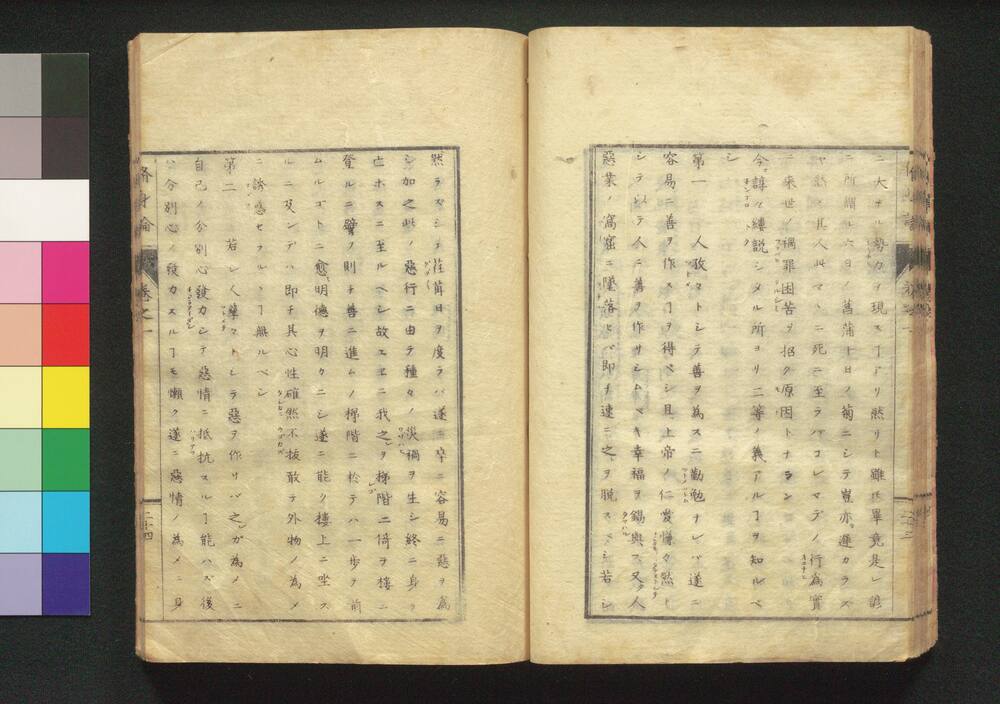 ニ大ナル勢力ヲ現スヿアリ然リト雖𪜈畢竟是レ諺
ニ所謂ル六日ノ菖蒲十日ノ菊ニシテ豈亦遲カラズ
ヤ然ㇾ𪜈其人此マヽニ死ニ至ラバコレマデノ行為實
ニ来世ノ禍罪困苦ヲ招ク原因トナラン
今諄々縷説シタル所ヨリ二等ノ義アルヿヲ知ルベ
シ
第一 人孜々トシテ善ヲ為スニ勤勉ナレバ遂ニ
容易ニ善ヲ作スヿヲ得ベシ且上帝ノ仁愛
シテ以テ人ニ善ヲ作サシムベキ幸福ヲ錫與ス又人
惡業ノ窩窟ニ墜落セバ即チ速ニ之ヲ脱スベシ若シ
然ラズシテ荏苒日ヲ度ラバ遂ニ卒ニ容易ニ惡ヲ為
シ加之此ノ惡行ニ由テ種々ノ災禍ヲ生シ終ニ身ヲ
亡ホスニ至ルベシ故ニ我之ヲ梯階ニ倚ヲ樓ニ
登ルニ譬ノ則チ善ニ進ムノ梯階ニ於テハ一歩ヲ前
ムルゴトニ愈明徳ヲ明カニシ遂ニ能ク樓上ニ坐ス
ルニ及ンデハ即チ其心性確然不抜敢テ外物ノ為メ
ニ誘惑セラルヽヿ無ルベシ
第二 若シ人孳々トシテ惡ヲ作リバ之レガ為メニ
自己ノ分別心發カシテ惡情ニ抵抗スルヿ能ハズ後
ハ分別心ノ發カスルヿモ懶ク遂ニ惡情ノ為メニ身
脩身論 巻之一 二十四